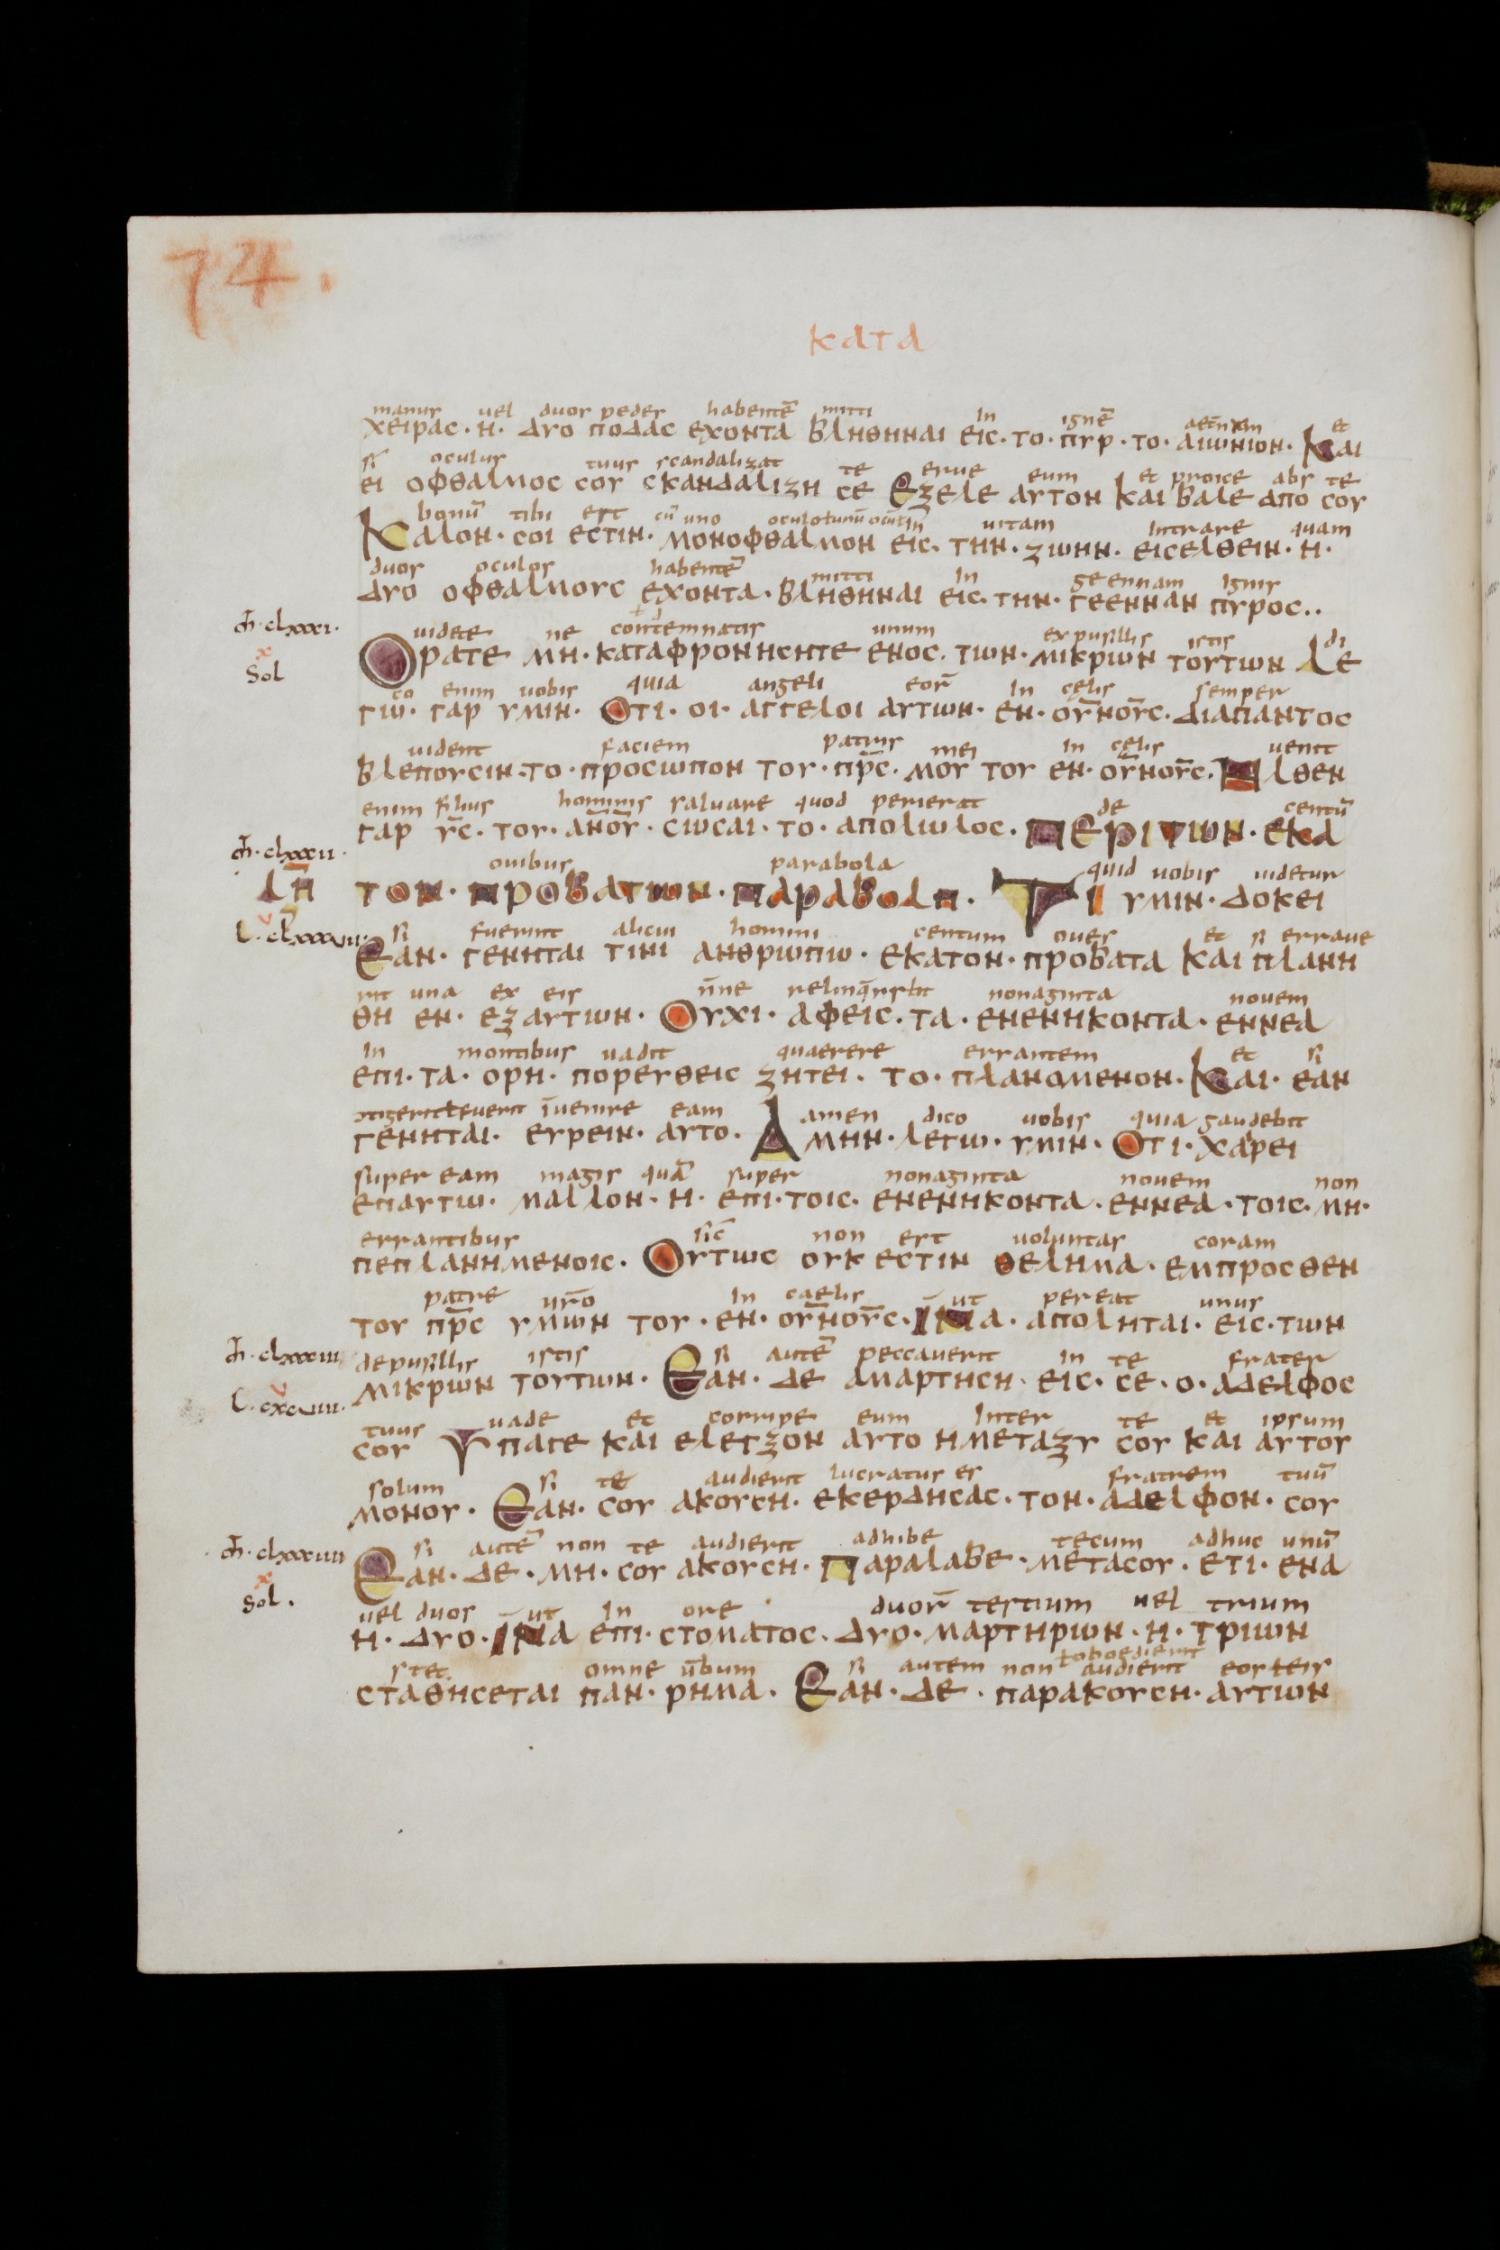 74.
κατα
manus uel duos pedes habentē mitti in ignē aet̄nam et
χειρας · η · δυο ποδας εχοντα βληθηναι εις · το · πυρ · το · αιωνιον · Και
si oculus tuus scandalizat te erue eum et proice abs te
ει οφθαλμος σου σκανδαλιζη σε Εξελε αυτον και βαλε απο σου
bonū tibi est cū uno in uitam intrare quam
Καλον · σοι εστιν · μονοφθαλμον εις · την · ζωην · εισελθειν · η ·
duos oculos habentē mitti in geennam ignis
δυο οφθαλμους εχοντα · βληθηναι εις · την · γεενναν πυρος ··
m̄ · clxxxi ·
uidete ne contemnatis unum ex pusillis istis di
Ορατε μη · καταφρονησητε ενος · των · μικρων τουτων Λε
x
Sol
co enim uobis quia angeli eor̄ in cęlis semper
γω · γαρ υμιν · Οτι · οι · αγγελοι αυτων · εν · ουνοις · διαπαντος
uident faciem patris mei in cęlis uenit
βλεπουσιν · το · προσωπον του · πρ̄ς · μου του εν · ουνοις · Ηλθεν
enim filius hominis saluare quod perierat de centū
γαρ ῡς · του · αν̄ου · σωσαι · το · απολωλος · Περι των · εκα
m̄ · clxxxii ·
ouibus parabola quid uobis uidetur
λη τον · προβατων · παραβολη · Τι υμιν · δοκει
si fuerint alicui homini centum oues et si erraue
Εαν · γενηται τινι ανθρωπω · εκατον · προβατα και πλανη
rit una ex eis n̄ne nonaginta nouem
θη εν · εξ αυτων · Ουχι · αφεις · τα · ενενηκοντα · εννεα
in montibus uadit quaerere errantem et si
επι · τα · ορη · πορευθεις ζητει · το · πλανομενον · Και · εαν
īuenire eam amen dico uobis quia gaudebit
γενηται · ευρειν · αυτο · Αμην · λεγω · υμιν · Οτι · χαρει
super eam magis quā super nonaginta nouem non
επαυτω · μαλλον · η · επι · τοις · ενενηκοντα · εννεα · τοις · μη ·
errantibus sic̄ non est voluntas coram
πεπλανημενοις · Ουτως ουκ εστιν θελημα · εμπροσθεν
patre ur̄o in caelis ut pereat unus
του πρ̄ς υμων του · εν · ουνοις · ινα · αποληται · εις · των
m̄ · clxxxiii
de pusillis istis si autē peccauerit in te frater
μικρων τουτων · Εαν · δε αμαρτηση · εις · σε · ο · αδελφος
tuus uade et corripe eum inter te et ipsum
σου Υπαγε και ελεγξον αυτο ημεταξυ σου και αυτου
solum si te audierit lucratus es fratrem tuū
μονου · Εαν · σου ακουση · εκερδησας · τον · αδελφον · σου
m̄ · clxxxiiii
si autē non te audierit adhibe tecum adhuc unū
Εαν · δε · μη · σου ακουση · Παραλαβε · μετασου · ετι · ενα
x
Sol ·
uel duos ut in ore duor̄ testium uel trium
η · δυο · ινα επι · στοματος · δυο · μαρτηρων · η · τριων
stet omne ūbum si autem non audierit eos
σταθησεται παν · ρημα · Εαν · δε · παρακουση · αυτων